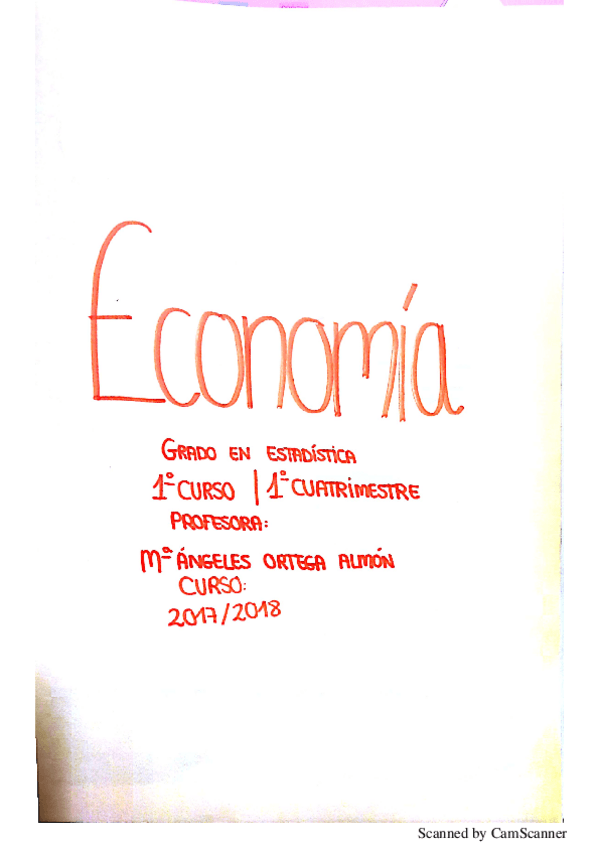 Economía
GRADO EN ESTADÍSTICA
1º CURSO | 1º CUATRIMESTRE
PROFESORA:
Mª ÁNGELES ORTEGA ALMÓN
CURSO:
2017/2018
Scanned by CamScanner